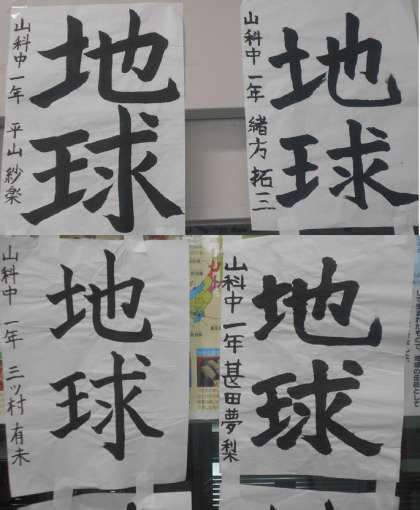 地球
山科中 一年 平山 紗楽
地球
山科中 一年 緒方 拓三
地球
山科中 一年 三ッ村 有未
地球
山科中 一年 甚田 夢梨